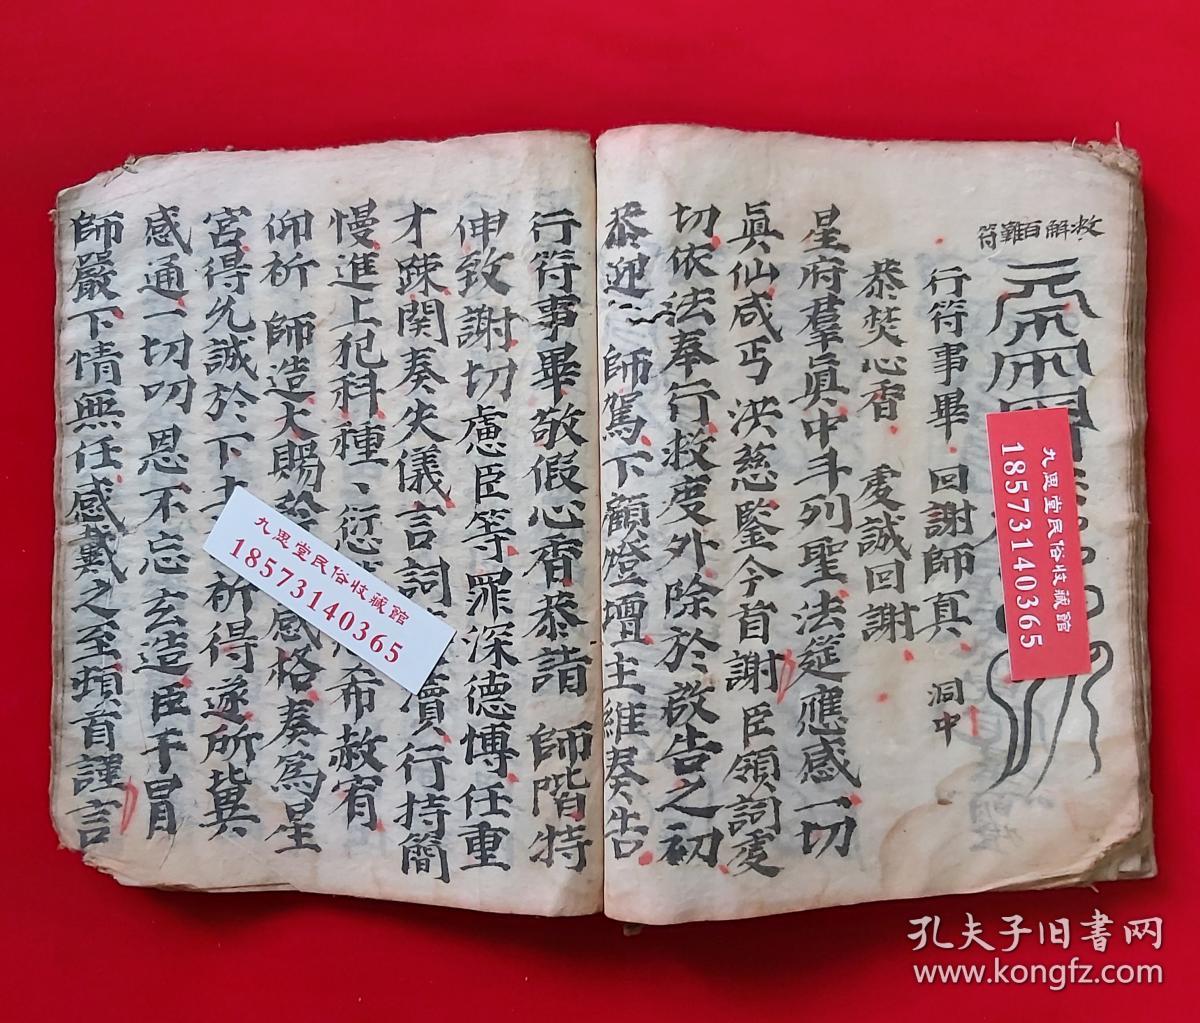 救解百難符
行符事畢 回謝師真 洞中
恭焚心香 虔誠回謝
星府羣真中斗列聖法筵應感一切
真仙咸丐 洪慈鑒今首謝臣領詞虔
切依法奉行救度外除於啟告之初
恭迎 師駕下顧燈壇主維奏告
行符事畢敬假心香恭詣 師階特
伸致謝切慮臣等罪深德愽任重
才踈関奏失儀言詞 瀆行持簡
慢進上犯科種、愆 希赦宥
仰祈 師造大賜 感格奏為星
宮得允誠於下 祈得遂所冀
感通一切叨恩不忘玄造臣干冒
師嚴下情無任感戴之至頓首謹言
九思堂民俗收藏館
18573140365
九思堂民俗收藏館
18573140365
孔夫子旧书网
www.kongfz.com